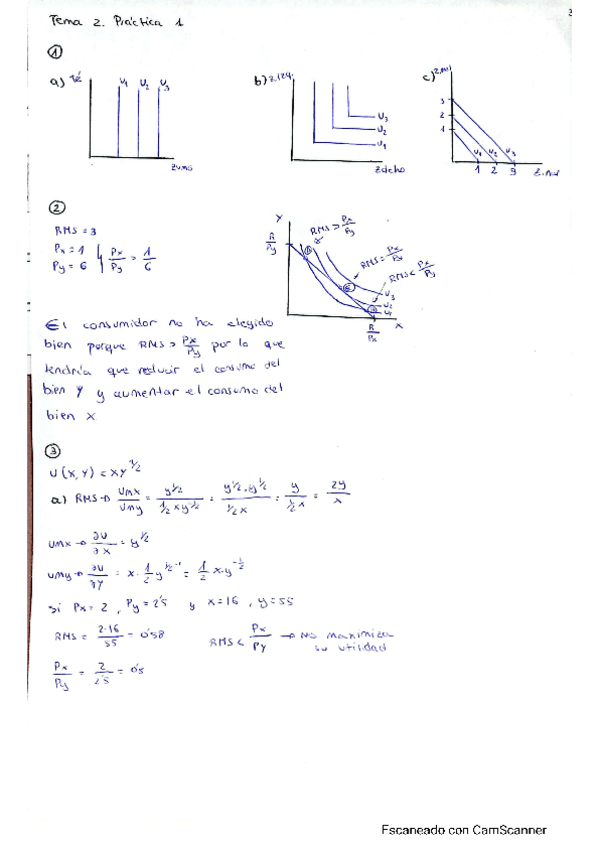 Tema 2. Práctica 1
①
a) Té
U1 U2 U3
Zumo
b) Z.izq.
U3
U2
U1
Zdcho
c)
3
2
1
U1 U2 U3
1 2 3
②
RMS = 3
Px = 1
Py = 6
Px/Py = 1/6
Y
R/Py
RMS > Px/Py
RMS = Px/Py
RMS < Px/Py
U3
U2
U1
R/Px
X
El consumidor no ha elegido
bien porque RMS > Px/Py por lo que
tendría que reducir el consumo del
bien Y y aumentar el consumo del
bien X
③
U(X,Y) = XY^1/2
a) RMS → UMX/UMY = y^1/2 / 1/2 xy^-1/2 = y^1/2 · y^1/2 / 1/2 x = y / 1/2 x = 2y/x
UMX → ∂U/∂X = y^1/2
UMY → ∂U/∂Y = x · 1/2 y^1/2-1 = 1/2 x · y^-1/2
Si Px = 2 , Py = 2'5 y x = 16 , y = 55
RMS = 2·16/55 = 0'58
RMS < Px/Py → No maximiza
su utilidad
Px/Py = 2/2'5 = 0'5
Escaneado con CamScanner